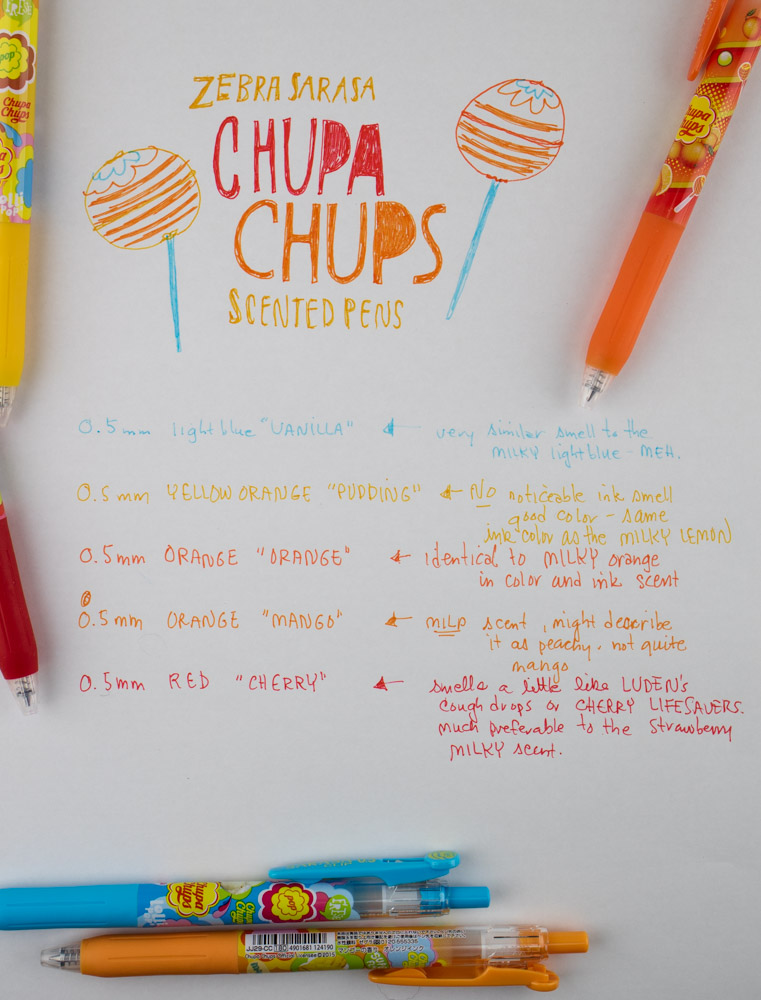 FRESH
pop
Chupa
Chups
ZEBRA SARASA
CHUPA
CHUPS
SCENTED PENS
Chupa
Chups
0.5mm light blue "VANILLA" very similar smell to the
MILKY light blue - MEH.
0.5mm YELLOW ORANGE "PUDDING" NO noticeable ink smell
good color - same
ink color as the MILKY LEMON
0.5mm ORANGE "ORANGE" identical to MILKY orange
in color and ink scent
0.5mm ORANGE "MANGO" MILD scent, might describe
it as peachy. not quite
mango
0.5mm RED "CHERRY" smells a little like LUDEN'S
cough drops or CHERRY LIFESAVERS.
much preferable to the strawberry
MILKY scent.
Chupa
Chups
pop
FRESH
JJ29-CC 4901681 124190